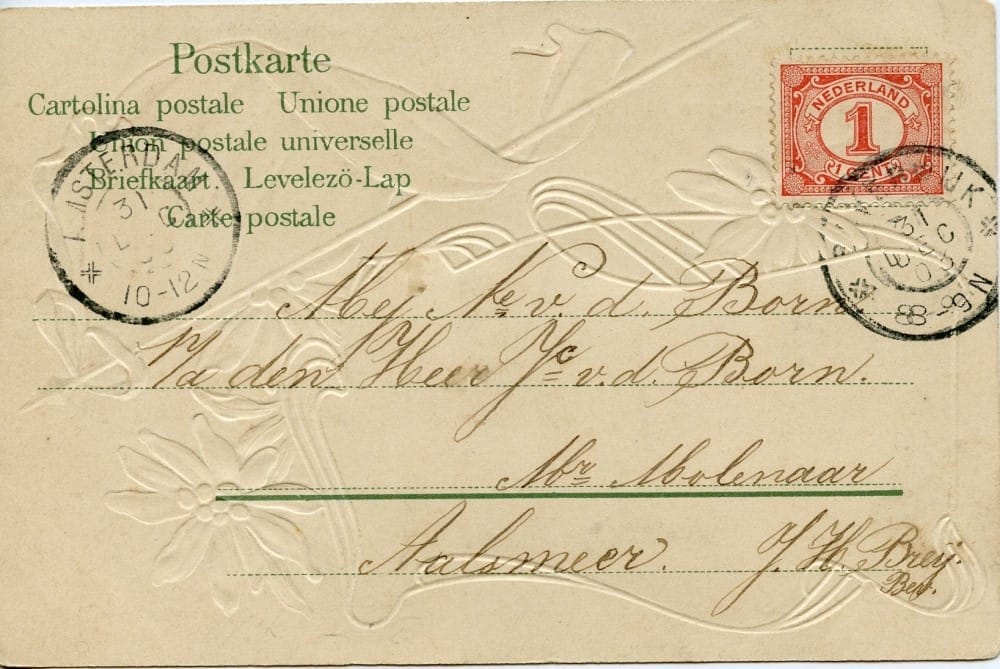 Postkarte
Cartolina postale Unione postale
Union postale universelle
Briefkaart. Levelezö-Lap
Carte postale
NEDERLAND
1
1 CENT
AMSTERDAM
31
10-12 N
N
8-8
Mej Ne v. d. Born
P/a den Heer Jc v. d. Born.
Mr Molenaar
Aalsmeer. J. H. Breij.